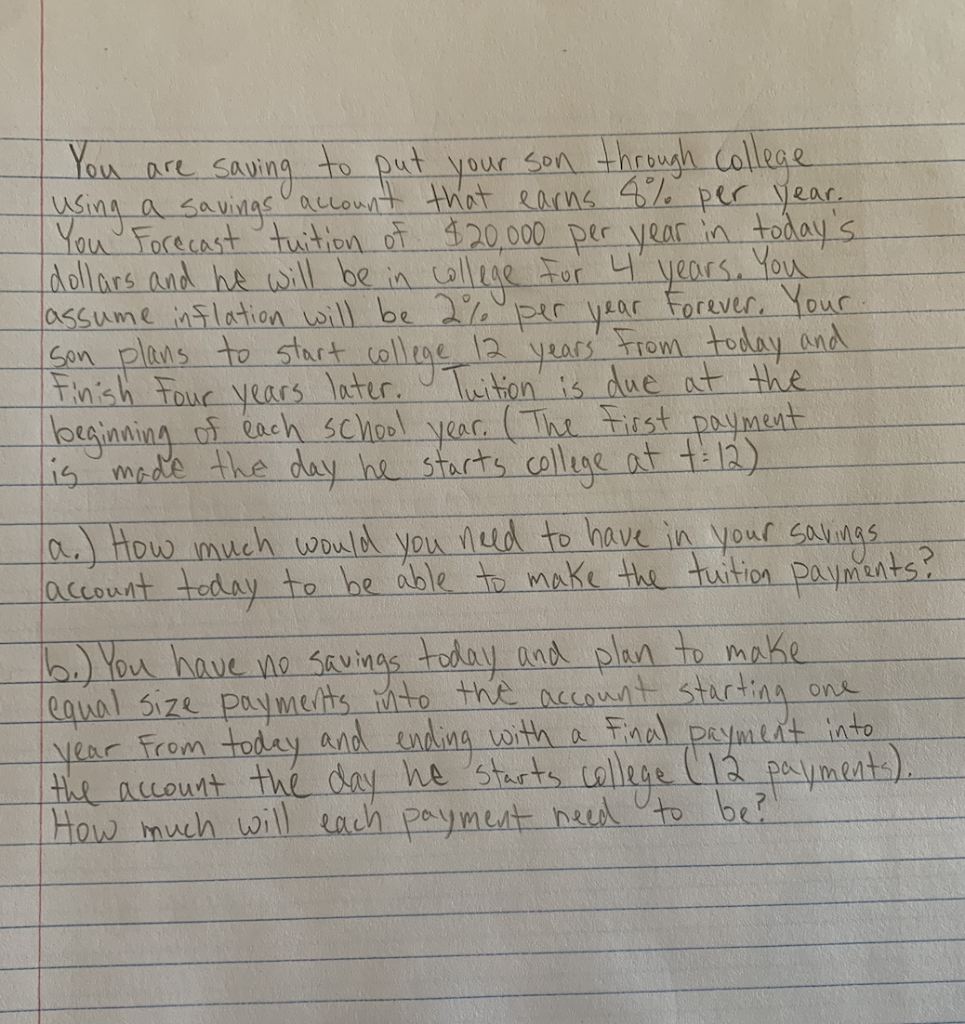 You are saving to put your son through college
using a savings account that earns 8% per year.
You Forecast tuition of $20,000 per year in today's
dollars and he will be in college for 4 years. You
assume inflation will be 2% per year Forever. Your
son plans to start college 12 years From today and
Finish Four years later. Tuition is due at the
beginning of each school year. (The First payment
is made the day he starts college at t=12)
a.) How much would you need to have in your savings
account today to be able to make the tuition payments?
b.) You have no savings today and plan to make
equal size payments into the account starting one
year From today and ending with a final payment into
the account the day he starts college (12 payments).
How much will each payment need to be?